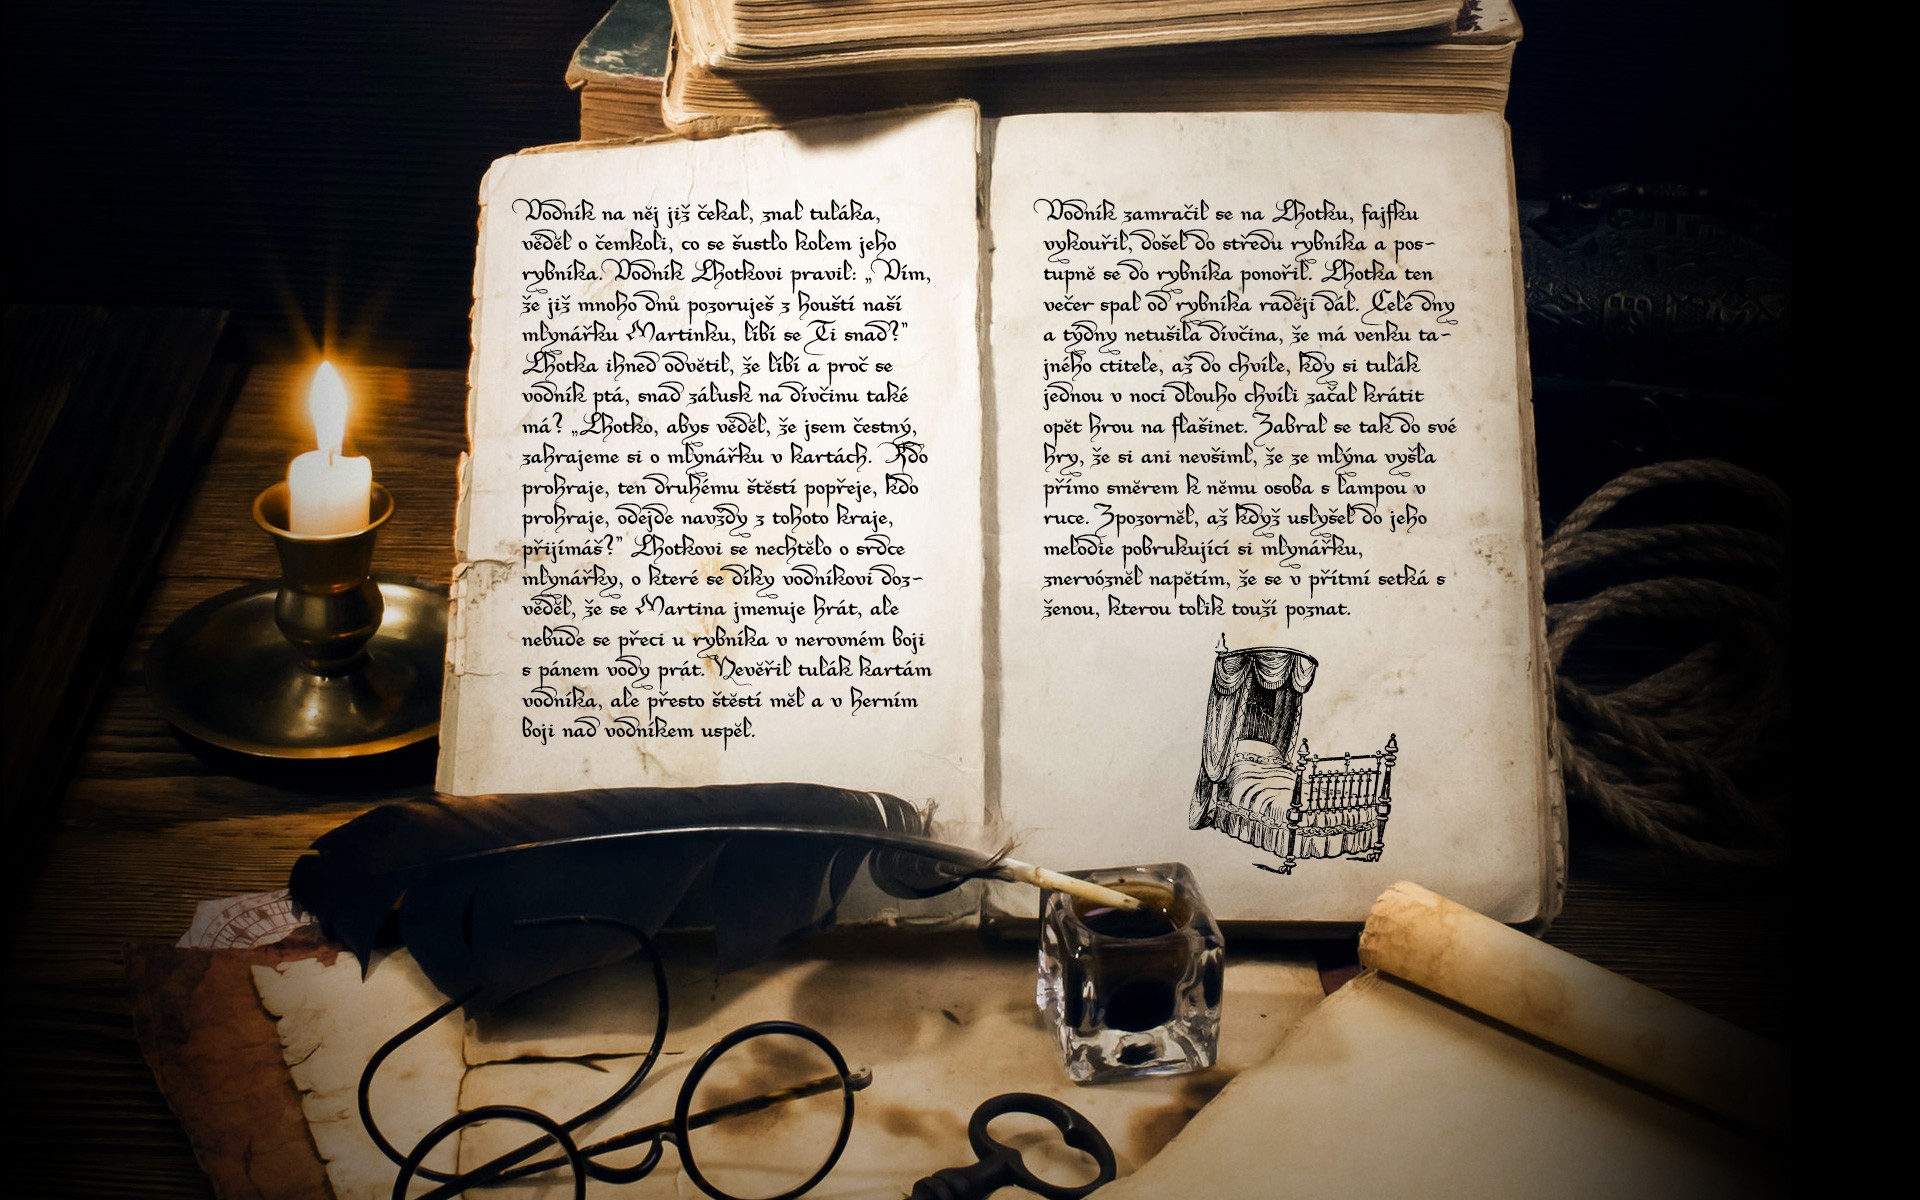 Vodník na něj již čekal, znal tuláka,
věděl o čemkoli, co se šustlo kolem jeho
rybníka. Vodník Lhotkovi pravil: „Vím,
že již mnoho dnů pozoruješ z houští naší
mlynářku Martinku, líbí se Ti snad?"
Lhotka ihned odvětil, že líbí a proč se
vodník ptá, snad zálusk na dívčinu také
má? „Lhotko, abys věděl, že jsem čestný,
zahrajeme si o mlynářku v kartách. Kdo
prohraje, ten druhému štěstí popřeje, kdo
prohraje, odejde navždy z tohoto kraje,
přijímáš?" Lhotkovi se nechtělo o srdce
mlynářky, o které se díky vodníkovi doz-
věděl, že se Martina jmenuje hrát, ale
nebude se přeci u rybníka v nerovném boji
s pánem vody prát. Nevěřil tulák kartám
vodníka, ale přesto štěstí měl a v herním
boji nad vodníkem uspěl.
Vodník zamračil se na Lhotku, fajfku
vykouřil, došel do středu rybníka a pos-
tupně se do rybníka ponořil. Lhotka ten
večer spal od rybníka raději dál. Celé dny
a týdny netušila dívčina, že má venku ta-
jného ctitele, až do chvíle, kdy si tulák
jednou v noci dlouho chvíli začal krátit
opět hrou na flašinet. Zabral se tak do své
hry, že si ani nevšiml, že ze mlýna vyšla
přímo směrem k němu osoba s lampou v
ruce. Zpozorněl, až když uslyšel do jeho
melodie pobrukující si mlynářku,
znervózněl napětím, že se v přítmí setká s
ženou, kterou tolik touží poznat.